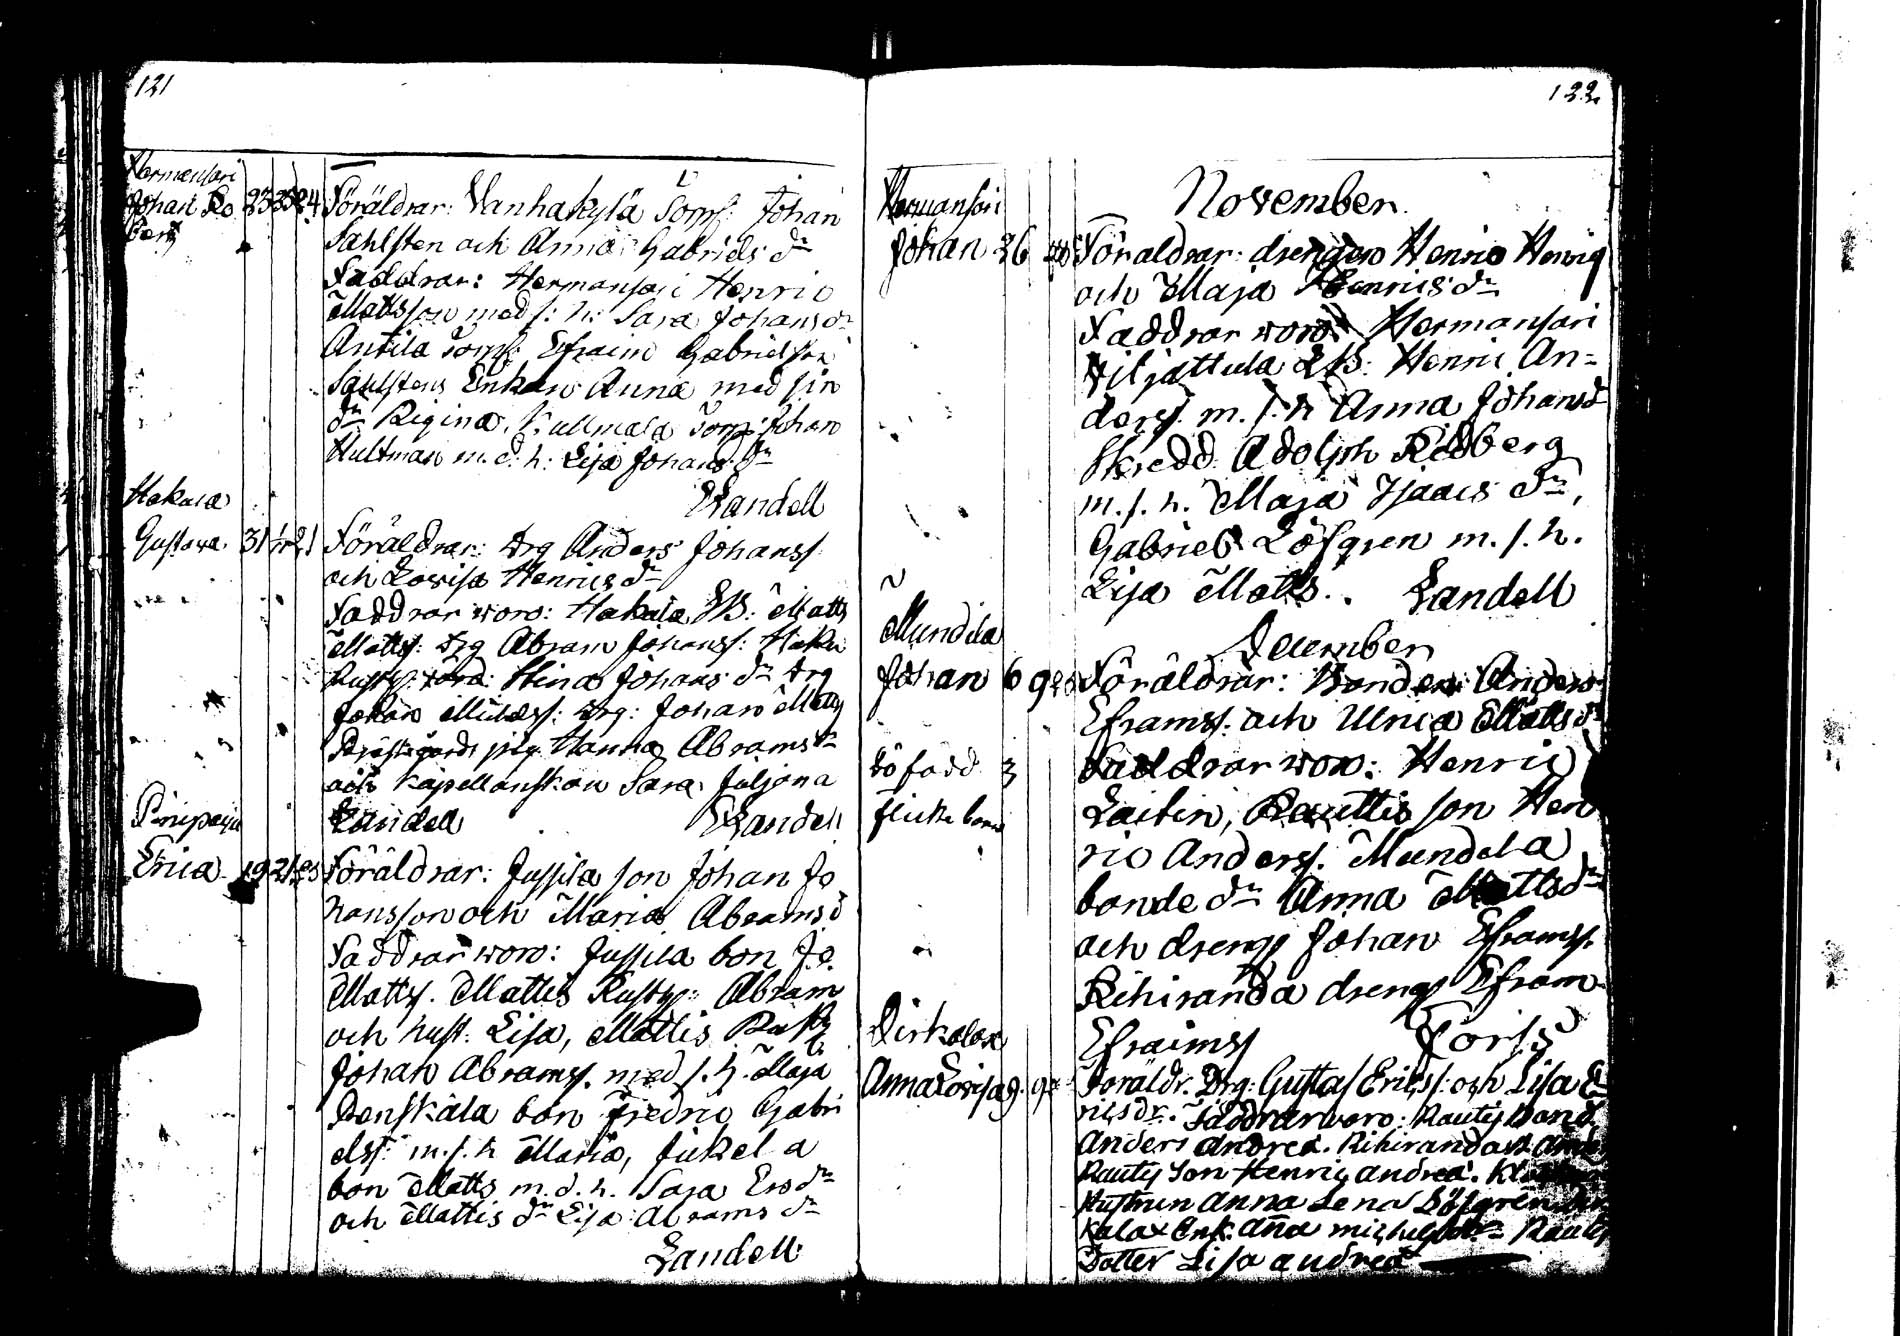 121
Hermansari
Johan Ro
bert
23 25 24
Föräldrar: Vanhakylä Torp: Johan
Sahlsten och Anna Gabriels dr
Faddrar: Hermansari Henric
Mattsson med s: h: Sara Johans dr
Antila Torp: Efraim Gabrielsson
Sahlstens Enkan Anna med sin
dr Regina, Kullmala Torp: Johan
Hultman m. s. h: Lisa Johans dr
Landell
Hakala
Gustava 31 21
Föräldrar: drg Anders Johanss
och Lovisa Henrics dr
Faddrar woro: Hakala Matts
Matts: drg Abram Johanss:
Stina Johans dr drg
Johan drg: Johan Matts
Hanna Abrams dr
och Kapellanskan Sara Juliana
Landell Landell
Erica 19 21
Föräldrar: Jussila son Johan Jo
hansson och Maria Abrams d
Faddrar woro: Jussila bon Jo
Matts. Mattis Abram
och hust: Lisa, Mattis
Johan Abramss. med s. h. Maja
Benskala bon Fredric Gabri
elss: m. s. h Maria, Jukela
bon Matts m. s. h. Sara dr
och Mattis dr Lisa Abrams dr
Landell
122
November
Hermansari
Johan 26
Föräldrar: drengen Henric Henrig
och Maja Henrics dr
Faddrar woro: Hermansari
Viljattula Henric An=
derss. m. s. h Anna Johans d
Skredd. Adolph Redberg
m. s. h. Maja Isaacs dr,
Gabriel Löfgren m. s. h.
Lisa Matts. Landell
December
Mundela
Johan 6 9
Föräldrar: Bonden Anders
Eframss: och Ulrica Matts dr
döfödd 3
flicke barn
Faddrar woro: Henric
Laitin, Rauttis son Hen
ric Anderss. Mundela
bonde dr Anna Matts dr
och drengs Johan Eframss.
Rihiranda drengs Efram
Efraimss Forss
Dirkalax
Anna Lovisa 9.
Föräldr. Drg: Gustaf Ericss: och Lisa E
ricsdr. Faddrar woro: Rautis Bond.
Anders Andrea. Rihiranda
Rautis Son Henric Andreæ.
Hustrun Anna Lena Löfgren
Kalax Enk: Aña Rautis
Dotter Lisa Andreæ